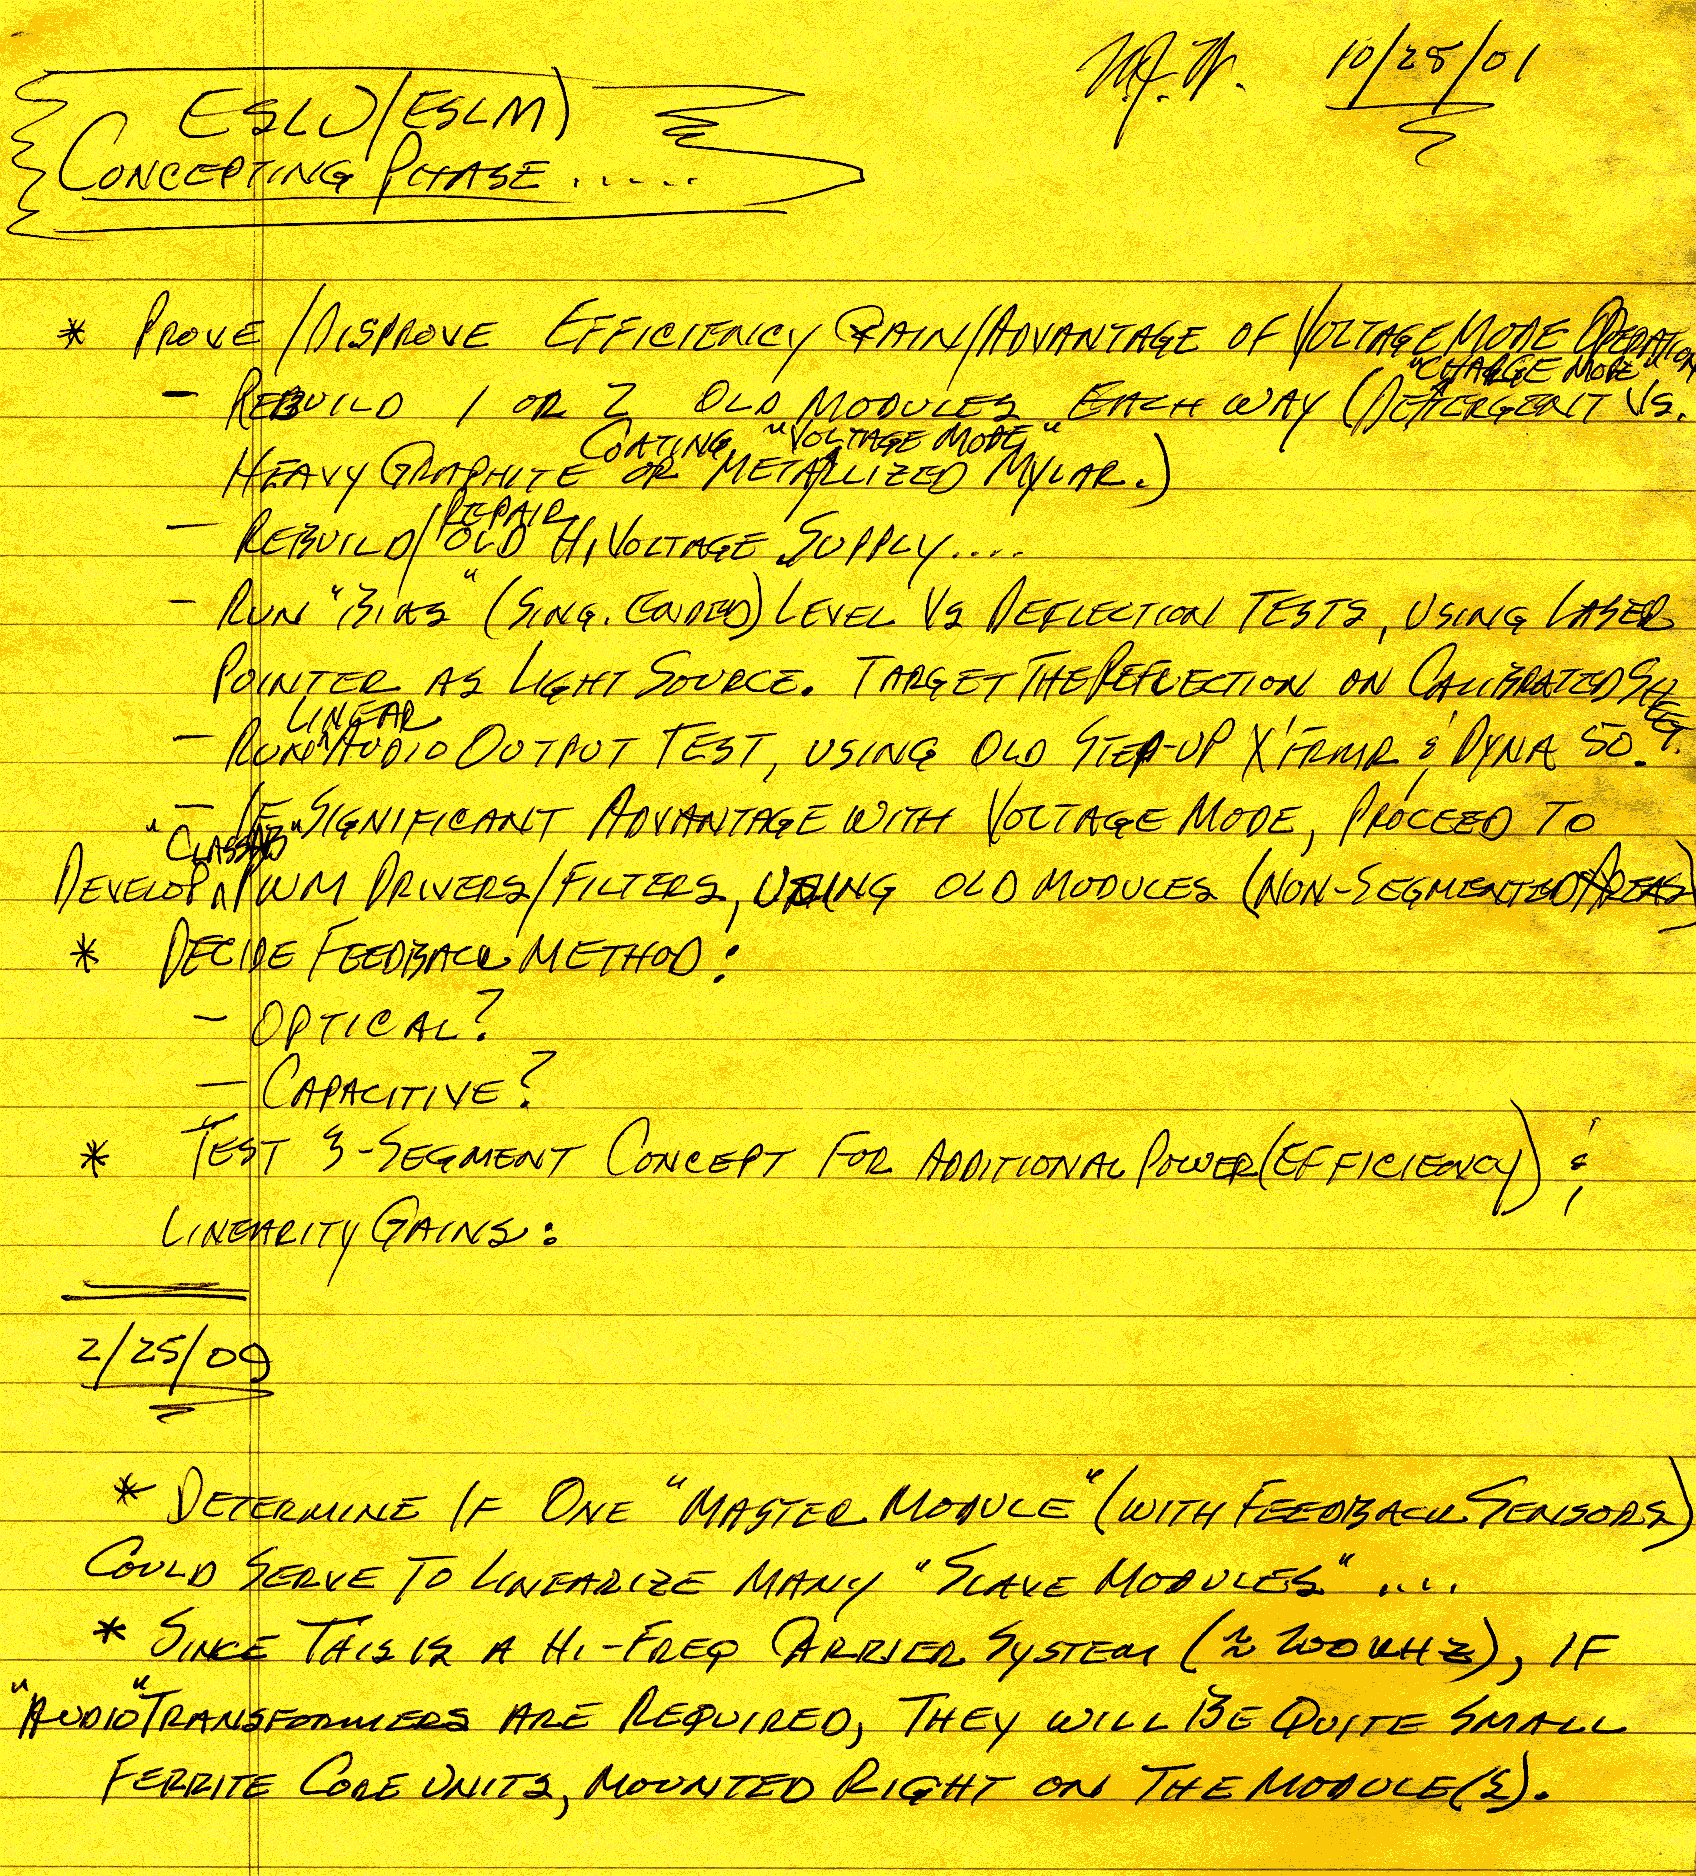 10/25/01
ESLD/(ESLM)
CONCEPTING PHASE .....
* PROVE/DISPROVE EFFICIENCY GAIN/ADVANTAGE OF VOLTAGE MODE OPERATION
"CHARGE MODE"
- REBUILD 1 OR 2 OLD MODULES EACH WAY (DETERGENT VS.
COATING, "VOLTAGE MODE"
HEAVY GRAPHITE OR METALLIZED MYLAR.)
REPAIR
- REBUILD/OLD HI VOLTAGE SUPPLY....
- RUN "BIAS" (SING. ENDED) LEVEL VS DEFLECTION TESTS, USING LASER
POINTER AS LIGHT SOURCE. TARGET THE REFLECTION ON CALIBRATED SHEET.
LINEAR
- RUN AUDIO OUTPUT TEST, USING OLD STEP-UP X'FRMR & DYNA 50.
- IF SIGNIFICANT ADVANTAGE WITH VOLTAGE MODE, PROCEED TO
"CLASS B"
DEVELOP PWM DRIVERS/FILTERS, USING OLD MODULES (NON-SEGMENTED AREAS)
* DECIDE FEEDBACK METHOD:
- OPTICAL?
- CAPACITIVE?
* TEST 3-SEGMENT CONCEPT FOR ADDITIONAL POWER (EFFICIENCY) &
LINEARITY GAINS:
2/25/09
* DETERMINE IF ONE "MASTER MODULE" (WITH FEEDBACK SENSORS)
COULD SERVE TO LINEARIZE MANY "SLAVE MODULES" ....
* SINCE THIS IS A HI-FREQ CARRIER SYSTEM (≈ 200 KHZ), IF
"AUDIO" TRANSFORMERS ARE REQUIRED, THEY WILL BE QUITE SMALL
FERRITE CORE UNITS, MOUNTED RIGHT ON THE MODULE(S).